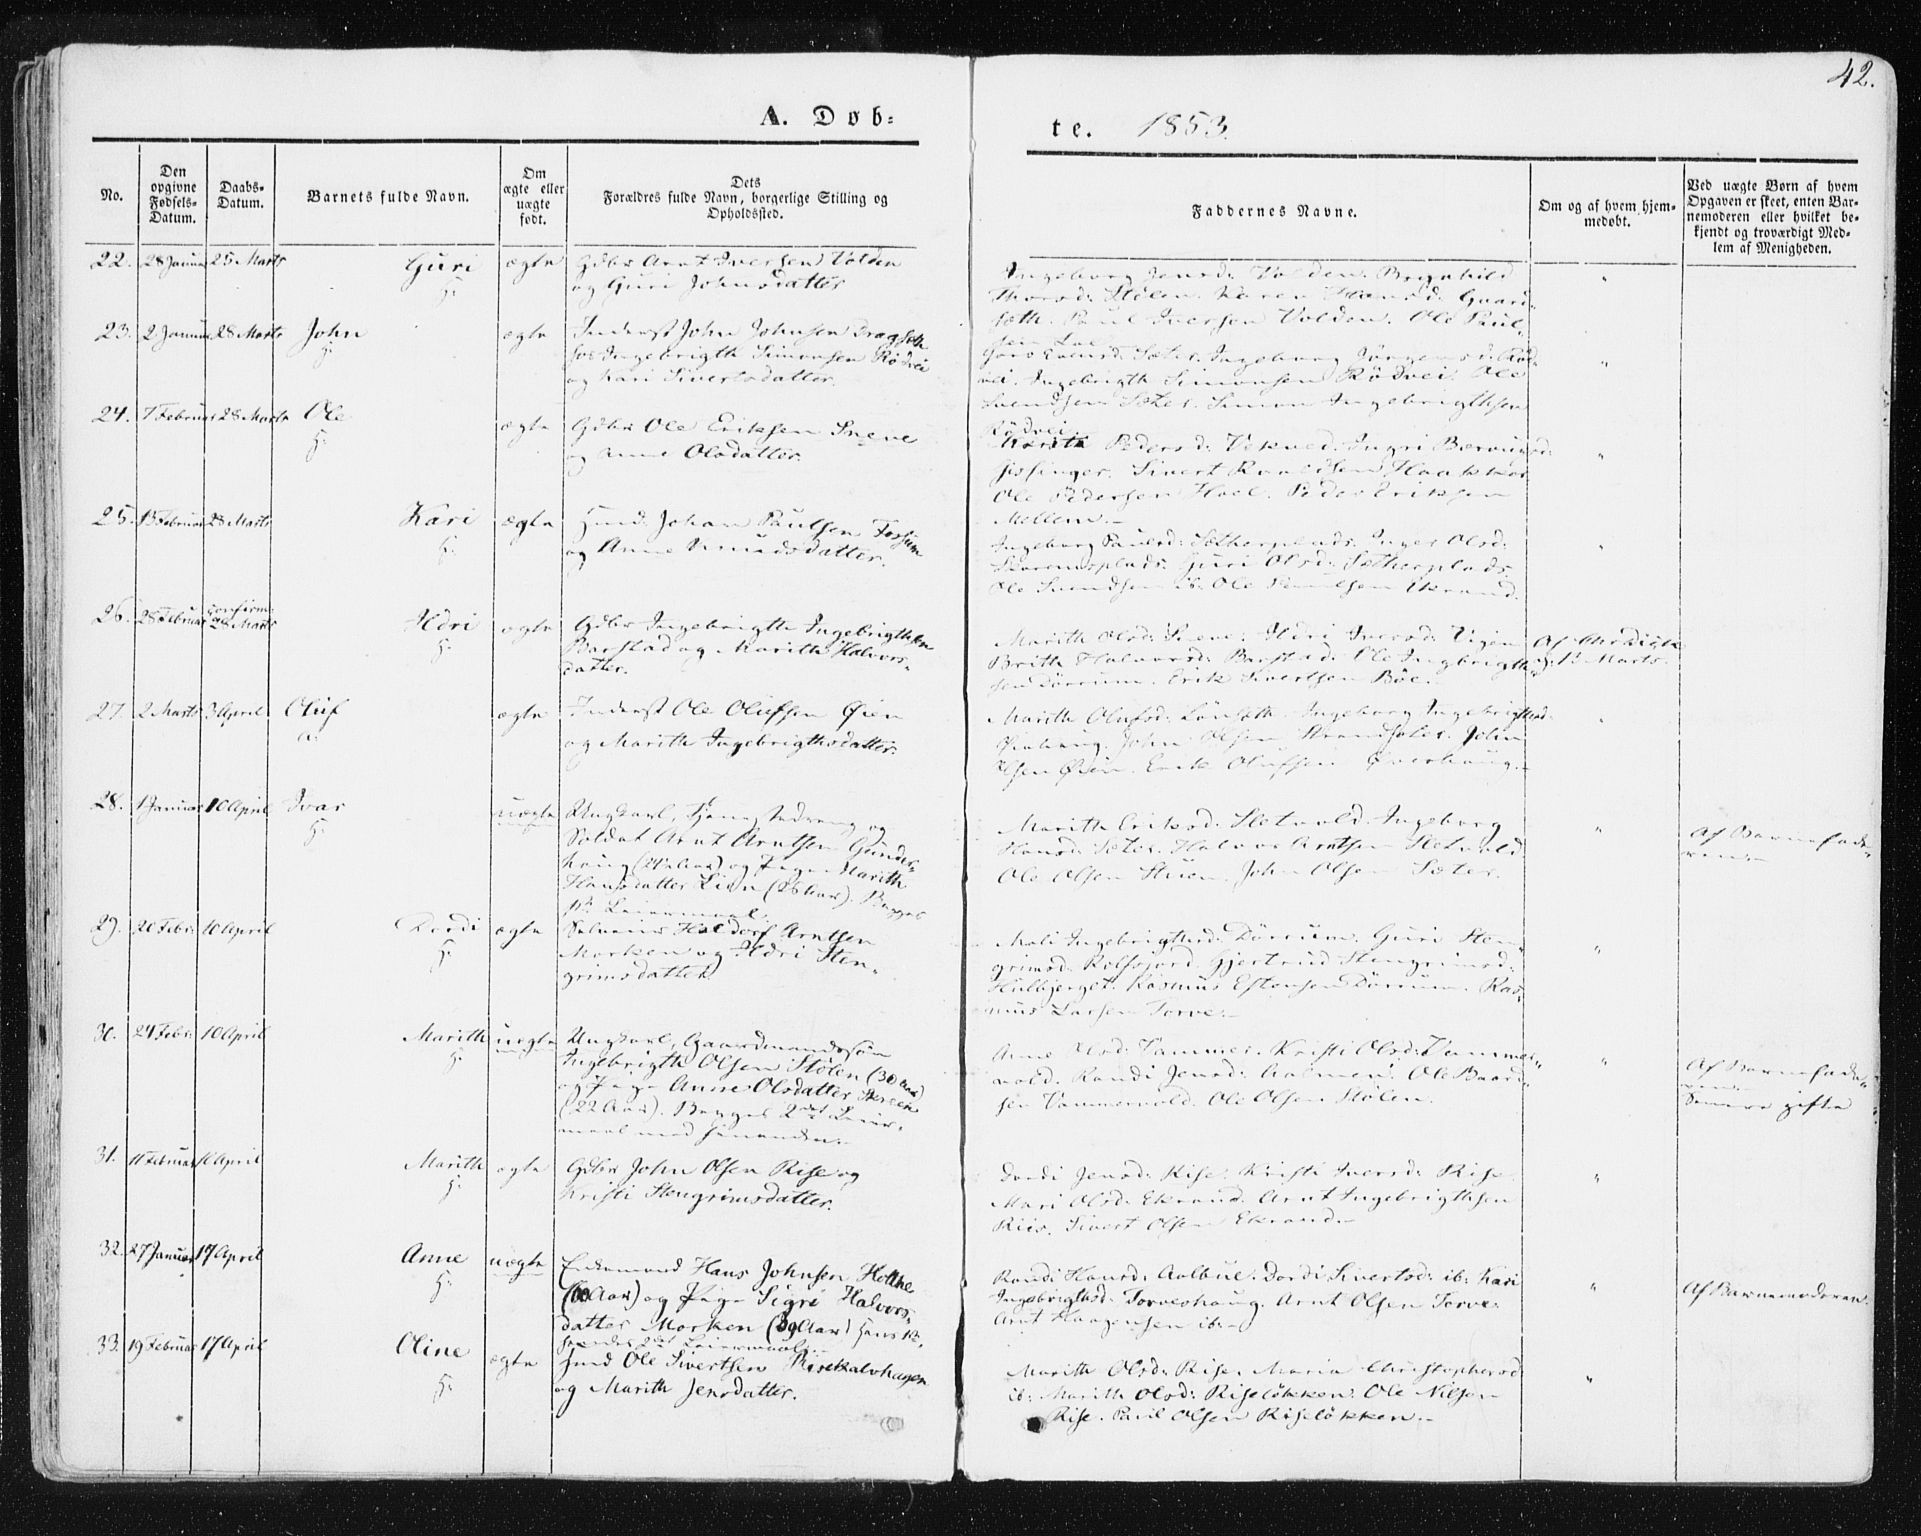 42.
A. Døb=
te. 1853.
No.
Den opgivne Fødsels-Datum.
Daabs-Datum.
Barnets fulde Navn.
Om ægte eller uægte født.
Dets Forældres fulde Navn, borgerlige Stilling og Opholdssted.
Faddernes Navne.
Om og af hvem hjemmedøbt.
Ved uægte Børn af hvem Opgaven er skeet, enten Barnemoderen eller hvilket bekjendt og troværdigt Medlem af Menigheden.
22. 28 Januar 25 Marts Guri ægte Gdbr Arnt Iversen Volden
H: og Guri Johnsdatter
Ingeborg Jensd: Volden. Brynhild
Thorsd: Stølen. Karen Hansd: Gaard-
sæth. Paul Iversen Volden. Ole Paul-
sen
23. 2 Januar 28 Marts John ægte Inderst John Johnsen Dragseth
H: hos Ingebrigth Simonsen Rødvei
og Kari Sivertsdatter.
Sæter. Ingeborg Jørgensd: Rød-
vei. Ingebrigth Simonsen Rødvei. Ole
Svendsen Sæter. Simon Ingebrigthsen
Rødvei.
24. 7 Februar 28 Marts Ole ægte Gdbr Ole Eriksen Sneve
H: og Anne Olsdatter.
Pedersd: Vekved. Ingri
Sivert Haakker
Ole Pedersen Hoel. Peder Eriksen
Mellem.-
25. 13 Februar 28 Marts Kari ægte Huusmd. Johan Paulsen Fossum
H: og Anne Knudsdatter.
Ingeborg Paulsd: Sætherplads. Inger Olsd:
Guri Olsd: Sætherplads.
Ole Svendsen ib: Ole Ekrand.
26. 28 Februar confirm: 28 Marts Ildri ægte Gdbr Ingebrigth Ingebrigthsen
H: Barstad og Marith Halvors-
datter.
Marith Olsd: Sneve. Ildri Iversd: Vigen
Brith Halvorsd: Barstad. Ole Ingebrigth-
sen Dørrum. Erik Sivertsen Bøe.-
1st Marts.
27. 2 Marts 3 April Oluf ægte Inderst Ole Olufsen Øien
a: og Marith Ingebrigthsdatter.
Marith Olufsd: Lønseth. Ingeborg Ingebrigthsd:
Øienhaug. John Olsen Strandsæter. John
Olsen Øien. Erik Olufsen Øverhaug.-
28. 1 Januar 10 April Ivar uægte Ungkarl, Tjenestedreng og
H: Soldat Arnt Arntsen Gunde-
haug (24 Aar) og Pige Marith
Hansdatter Lien (26 Aar). Begges
1ste Leiermaal.
Marith Eriksd: Sletvold. Ingeborg
Hansd: Sæter. Halvor Arntsen Sletvold
Ole Olsen Stuen. John Olsen Sæter.
Af Barnefade-
ren.-
29. 20 Febr. 10 April Dordi ægte Selveier Haldorf Arntsen
H: Morken og Ildri Sten-
grimsdatter.
Mali Ingebrigthsd: Dørrum. Guri Sten-
grimsd: Rolfsjord. Gjertrud Stengrimsd:
Hulbjerget. Rasmus Estensen Dørrum. Ras-
mus Larsen Torve.-
30. 24 Febr. 10 April Marith uægte Ungkarl, Gaardmandssøn
H: Ingebrigth Olsen Stølen (30 Aar)
og Pige Anne Olsdatter
(22 Aar). Begges 2det Leier-
maal med hinanden.-
Anne Olsd: Vammer. Kristi Olsd: Vammer-
vold. Randi Jensd: Aalmen. Ole Baard-
sen Vammervold. Ole Olsen Stølen.
Af Barnefade-
ren.-
Senere gifte
31. 11 Februar 10 April Marith ægte Gdbr John Olsen Rise og
H: Kristi Stengrimsdatter.
Dordi Jensd: Rise. Kristi Iversd: Rise.
Mari Olsd: Ekrand. Arnt Ingebrigthsen
Riis. Sivert Olsen Ekrand.-
32. 27 Januar 17 April Anne uægte Enkemand Hans Johnsen Holthe
H: (60 Aar) og Pige Sigri Halvors-
datter Morken (39 Aar) Hans 1ste,
hendes 2det Leiermaal.-
Randi Hansd: Aalbue. Dordi Sivertsd: ib: Kari
Ingebrigthsd: Torveshaug. Arnt Olsen Torve.
Arnt Haagensen ib:-
Af Barnemoderen.
33. 19 Februar 17 April Oline ægte Huusmd Ole Sivertsen Risekalvhagen
H: og Marith Jensdatter.
Marith Olsd: Rise. Maria Christophersd:
ib: Marith Olsd: Riseløkken. Ole Nilsen
Rise. Paul Olsen Riseløkken.-